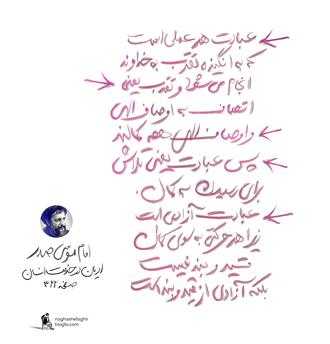 عبادت هر عملی است
که به انگیزه تقرب به خداوند
انجام می‌شود و تقرب یعنی
اتصاف به اوصاف الهی
و اوصاف الهی همه کمالند
پس عبادت یعنی تلاش
برای رسیدن به کمال.
عبادت آزادی است
زیرا هر حرکتی به سوی کمال
قید و بند نیست
بلکه آزادی از قید و بند است
امام موسی صدر
ادیان در خدمت انسان
صفحه
naghashefaghir
blogfa.com